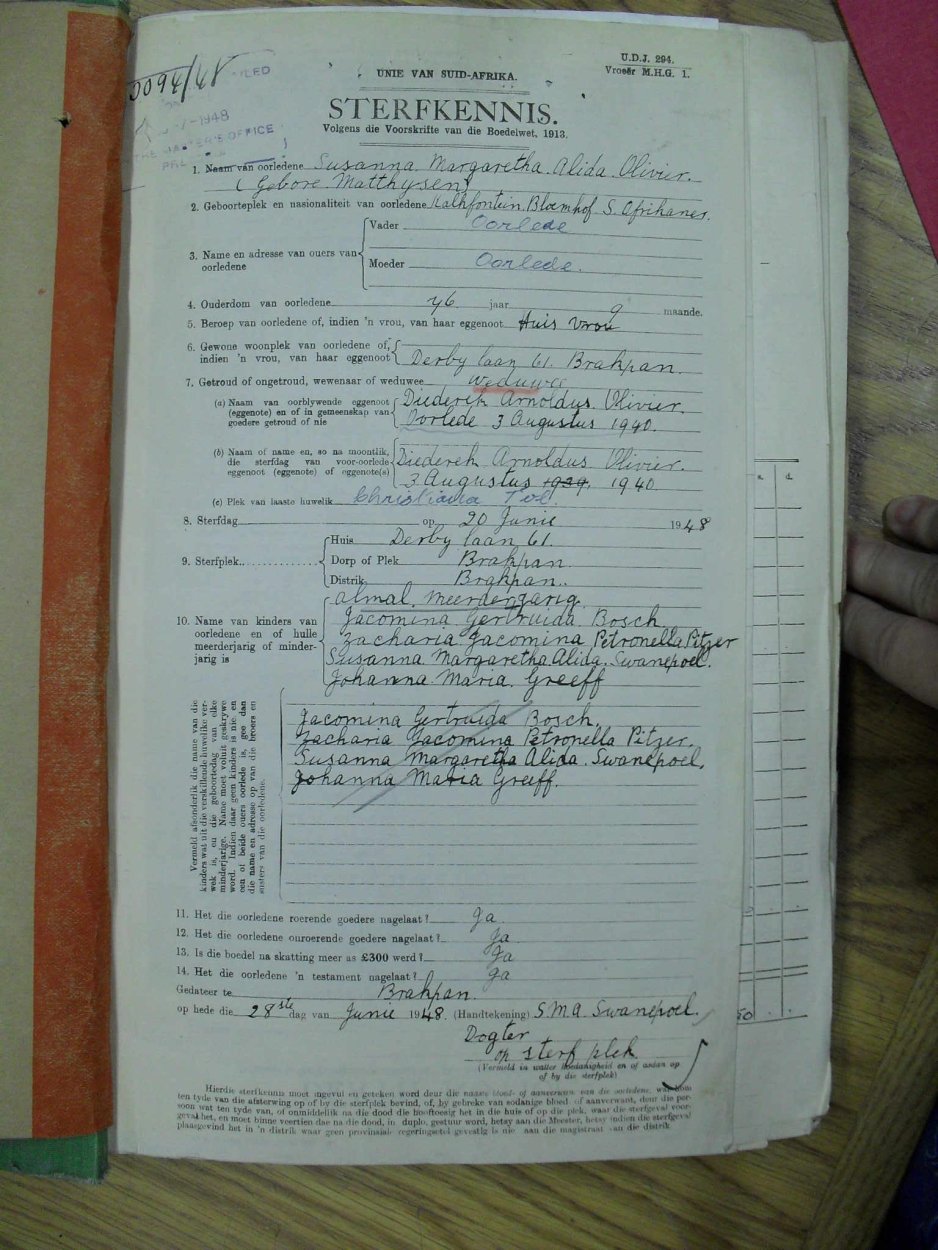 0094/48
-7-1948
THE MASTER'S OFFICE
U.D.J. 294.
Vroeër M.H.G. 1.
UNIE VAN SUID-AFRIKA.
STERFKENNIS.
Volgens die Voorskrifte van die Boedelwet, 1913.
1. Naam van oorledene Susanna Margaretha Alida Olivier
(Gebore Matthysen)
2. Geboorteplek en nasionaliteit van oorledene Kalkfontein Bloemhof S. Afrikanes.
3. Name en adresse van ouers van oorledene
Vader Oorlede
Moeder Oorlede.
4. Ouderdom van oorledene 76 jaar 9 maande.
5. Beroep van oorledene of, indien 'n vrou, van haar eggenoot Huis vrou
6. Gewone woonplek van oorledene of,
indien 'n vrou, van haar eggenoot Derby laan 61. Brakpan.
7. Getroud of ongetroud, wewenaar of weduwee weduwee
(a) Naam van oorblywende eggenoot
(eggenote) en of in gemeenskap van
goedere getroud of nie
Diederik Arnoldus Olivier.
Oorlede 3 Augustus 1940.
(b) Naam of name en, so na moontlik,
die sterfdag van voor-oorlede
eggenoot (eggenote) of eggenote(s)
Diederik Arnoldus Olivier.
3 Augustus 1939. 1940
(c) Plek van laaste huwelik Christiana Tvl
8. Sterfdag op 20 Junie 1948
9. Sterfplek
Huis Derby laan 61.
Dorp of Plek Brakpan
Distrik Brakpan..
10. Name van kinders van
oorledene en of hulle
meerderjarig of minder-
jarig is
almal meerderjarig
Jacomina Gertruida Bosch.
Zacharia Jacomina Petronella Pitzer
Susanna Margaretha Alida Swanepoel.
Johanna Maria Greeff
Vermeld afsonderlik die name van die
kinders wat uit die verskillende huwelike ver-
wek is, en die geboortedag van elke
minderjarige. Name moet voluit geskrywe
word. Indien daar geen kinders is nie en
een of beide ouers oorlede is, gee dan
die name en adresse op van die broers en
susters van die oorledene.
Jacomina Gertruida Bosch.
Zacharia Jacomina Petronella Pitzer.
Susanna Margaretha Alida Swanepoel.
Johanna Maria Greeff.
11. Het die oorledene roerende goedere nagelaat? Ja
12. Het die oorledene onroerende goedere nagelaat? Ja
13. Is die boedel na skatting meer as £300 werd? Ja
14. Het die oorledene 'n testament nagelaat? Ja
Gedateer te Brakpan.
op hede die 28ste dag van Junie 1948. (Handtekening) S.M.A Swanepoel.
Dogter
op sterf plek
(Vermeld in watter hoedanigheid en of aodan op
of by die sterfplek)
Hierdie sterfkennis moet ingevul en geteken word deur die naaste bloed- of aanverwant van die oorledene, wat kom
ten tyde van die afsterwing op of by die sterfplek bevind, of, by gebreke van sodanige bloed- of aanverwant, deur die per-
soon wat ten tyde van, of onmiddellik na die dood die hooftoesig het in die huis of op die plek, waar die sterfgeval voor-
geval het, en moet binne veertien dae na die dood, in duplo, gestuur word, hetsy aan die Meester, hetsy indien die sterfgeval
plaasgevind het in 'n distrik waar geen provinsiale regeringsetel gevestig is nie aan die magistraat van die distrik
s. d.